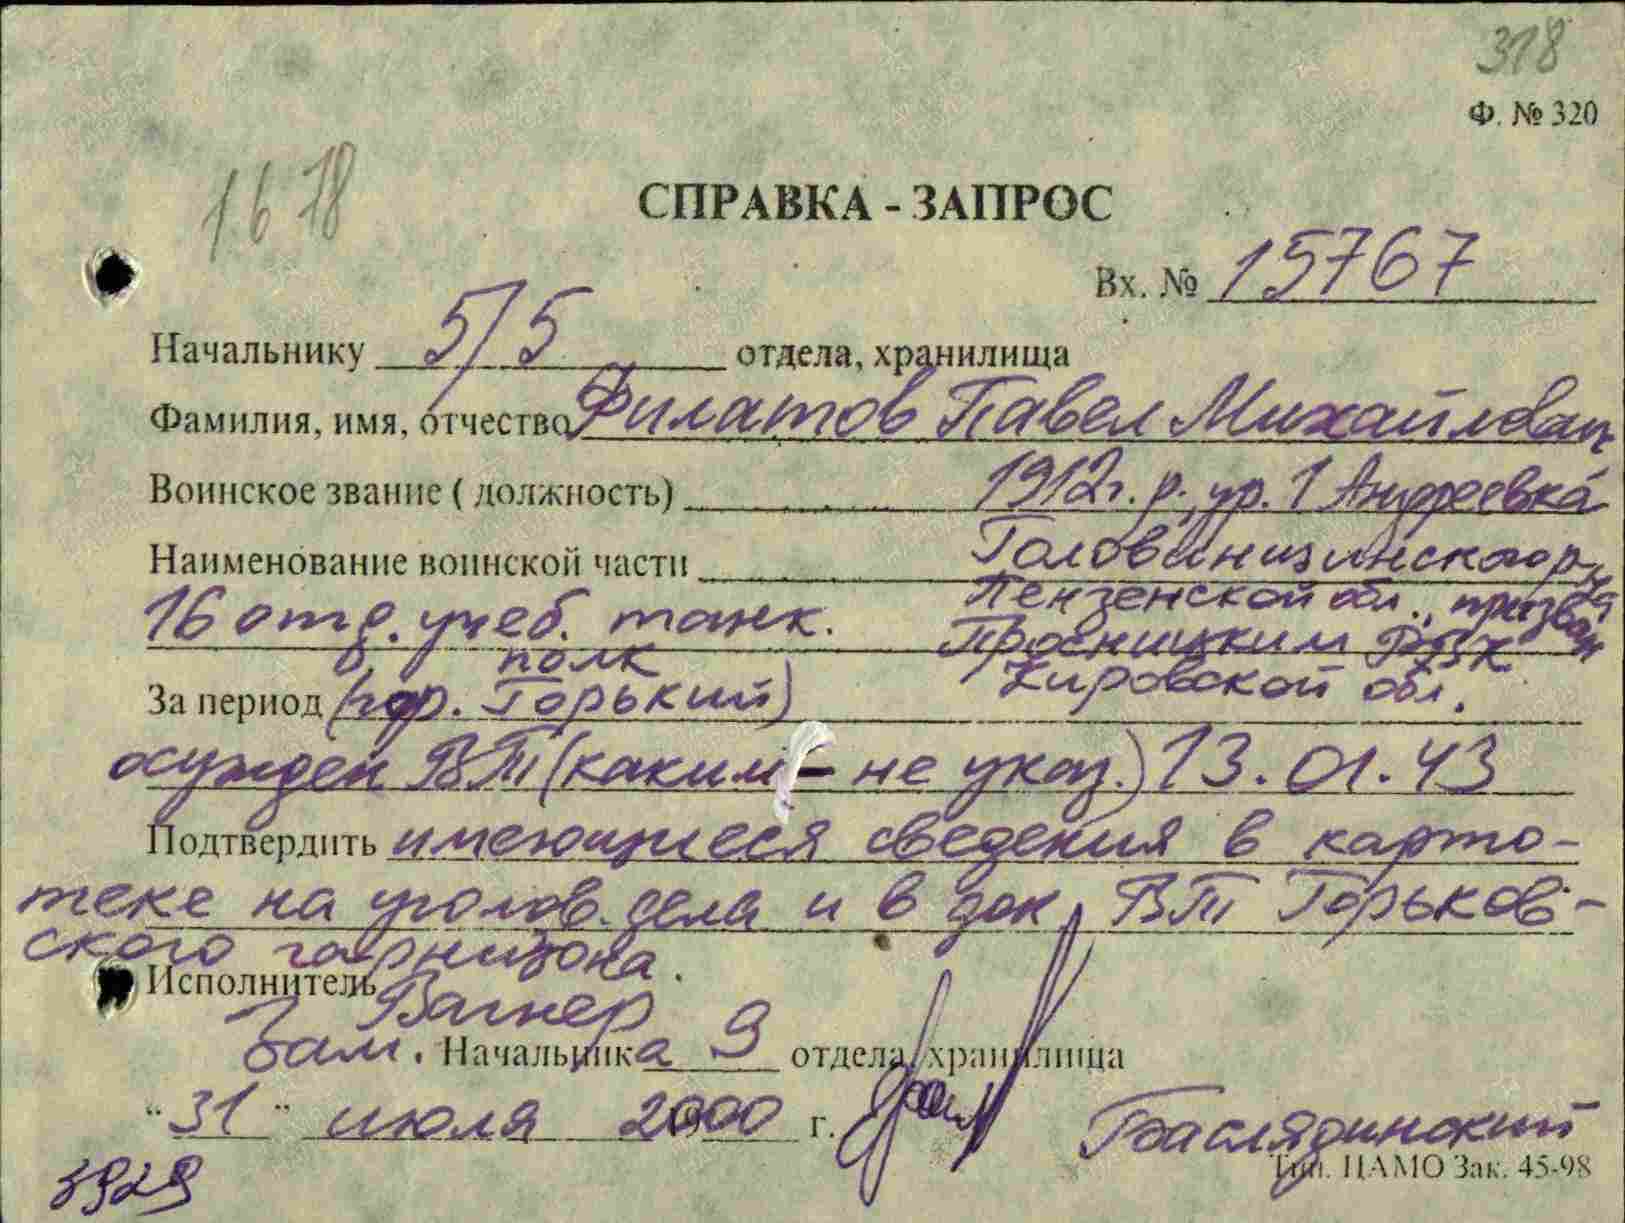 318
Ф. № 320
1678
СПРАВКА - ЗАПРОС
Вх. № 15767
Начальнику 5/5 отдела, хранилища
Фамилия, имя, отчество Филатов Павел Михайлович
Воинское звание ( должность) 1912г.р., ур. 1 Андреевка
Наименование воинской части Головинщинского р-на
Пензенской обл., призван
16 отд. учеб. танк. Просницким РВК
полк
За период (гор. Горький) Кировской обл.
осужден ВТ (каким - не указ.) 13.01.43
Подтвердить имеющиеся сведения в карто-
теке на уголов. дела и в док. ВТ Горьков-
ского гарнизона.
Исполнитель Вагнер
Зам. Начальника 9 отдела, хранилища
"31" июля 2000 г.
Баслядинский
3929
Тип. ЦАМО Зак. 45-98